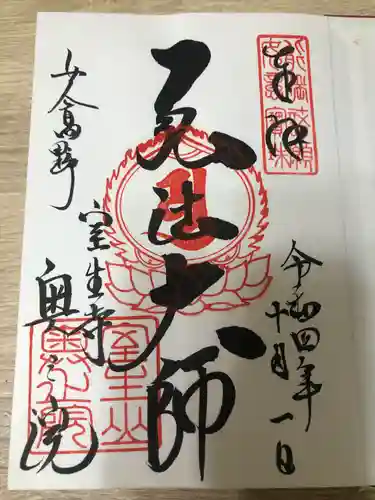 奉拝
令和四年
十月一日
弘法大師
女人高野
室生寺
奥之院
室生山
奥之院